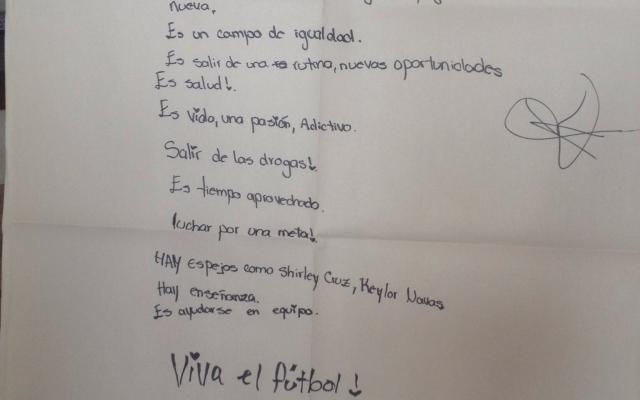 nueva,
Es un campo de igualdad.
Es salir de una rutina, nuevas oportunidades
Es salud!.
Es vida, una pasión, Adictivo.
Salir de las drogas!.
Es tiempo aprovechado.
luchar por una meta!.
HAY Espejos como Shirley Cruz, Keylor Navas
Hay enseñanza.
Es ayudarse en equipo.
Viva el fútbol!